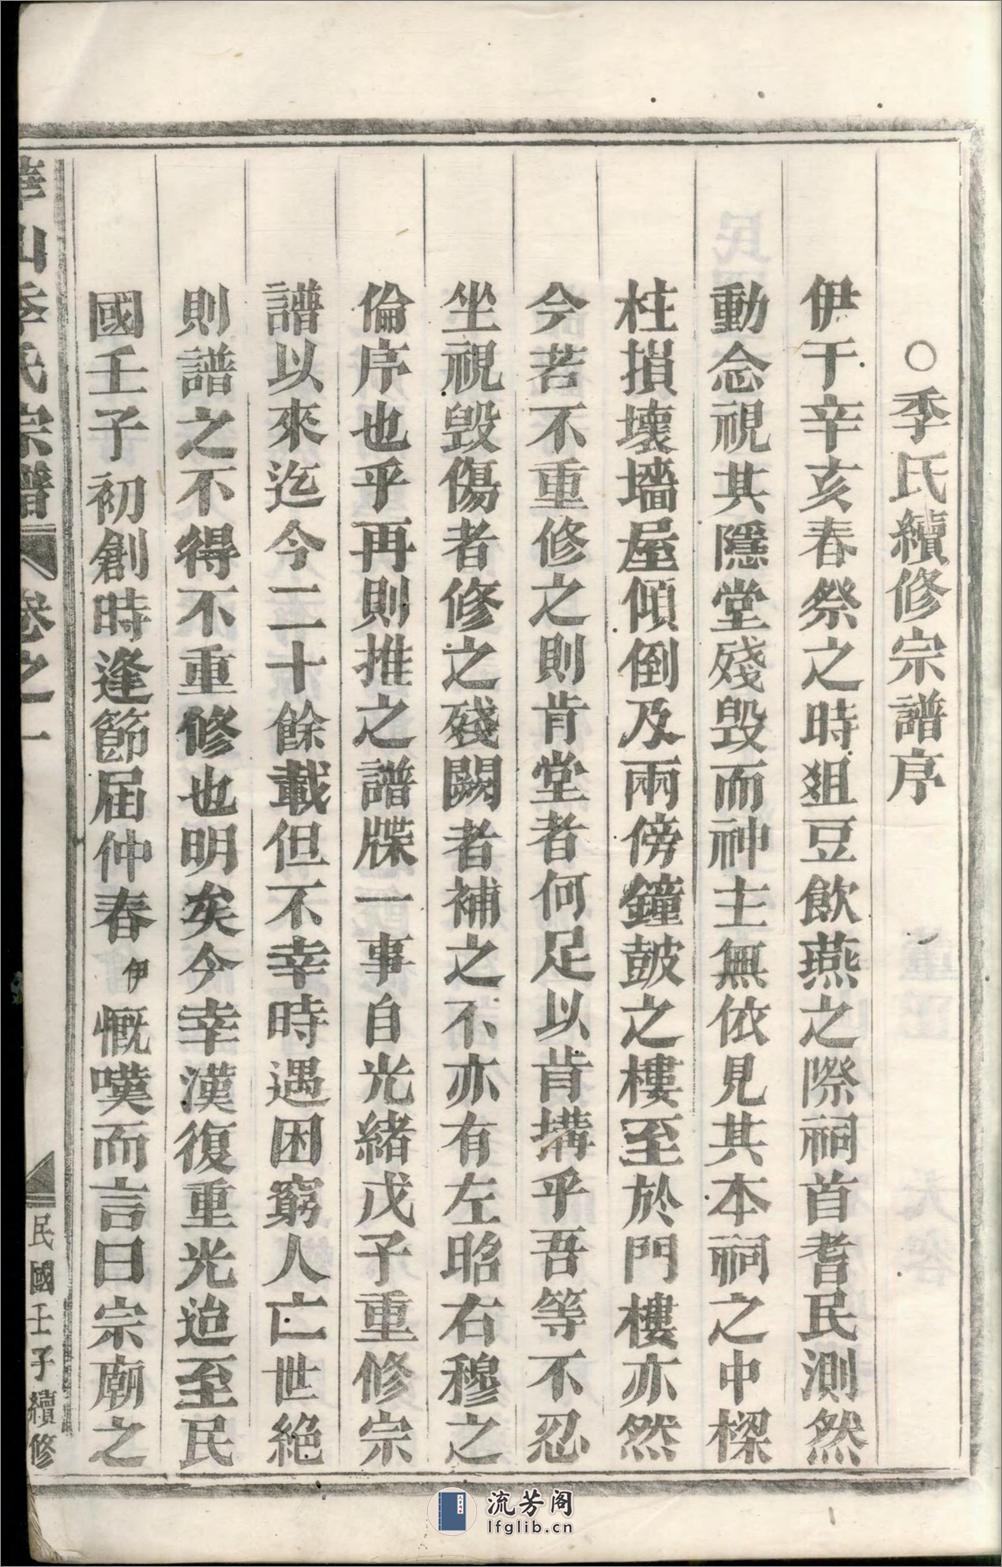 ○季氏續修宗譜序
伊于辛亥春祭之時爼豆飲燕之際祠首耆民測然
動念視其隱堂殘毀而神主無依見其本祠之中樑
柱損壞墻屋傾倒及兩傍鐘鼓之樓至於門樓亦然
今若不重修之則肯堂者何足以肯搆乎吾等不忍
坐視毀傷者修之殘闕者補之不亦有左昭右穆之
倫序也乎再則推之譜牒一事自光緒戊子重修宗
譜以來迄今二十餘載但不幸時遇困窮人亡世絕
則譜之不得不重修也明矣今幸漢復重光迨至民
國壬子初創時逢節届仲春伊慨嘆而言曰宗廟之
華山季氏宗譜 卷之一 民國壬子續修
流芳阁
lfglib.cn